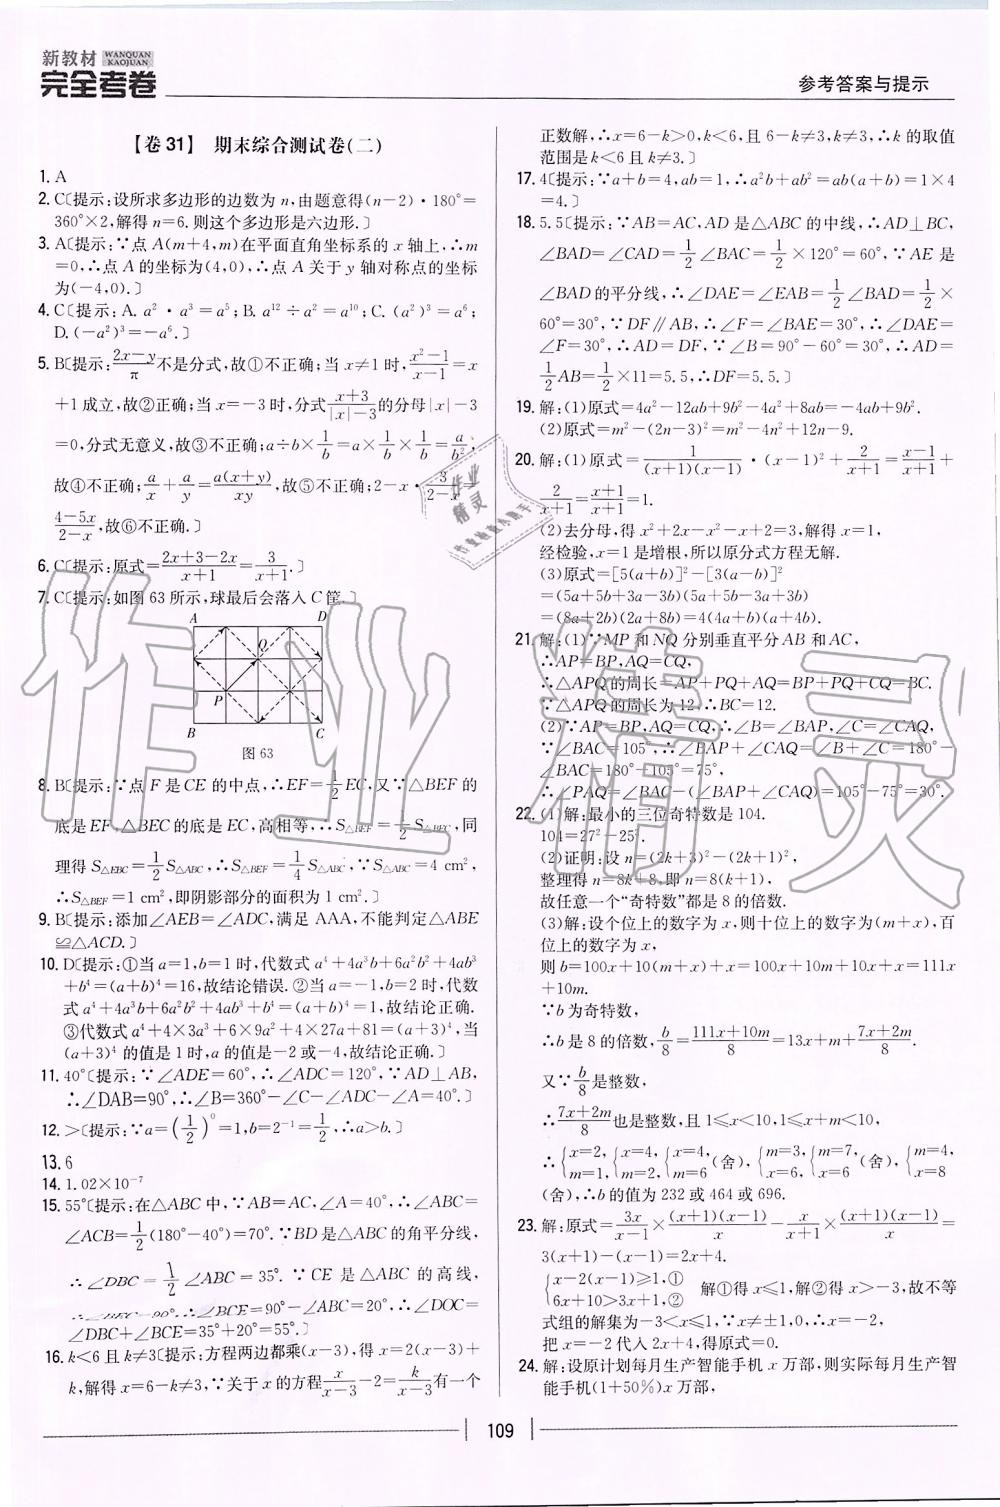 新教材 WANQUAN KAOJUAN
完全考卷
参考答案与提示
【卷31】 期末综合测试卷(二)
1. A
2. C〔提示:设所求多边形的边数为n,由题意得(n-2)·180°=
360°×2,解得n=6.则这个多边形是六边形.〕
3. A〔提示:∵点A(m+4,m)在平面直角坐标系的x轴上,∴m
=0,∴点A的坐标为(4,0),∴点A关于y轴对称点的坐标
为(-4,0).〕
4. C〔提示:A. a²·a³=a⁵;B. a¹²÷a²=a¹⁰;C. (a²)³=a⁶;
D. (-a²)³=-a⁶.〕
5. B〔提示:(2x-y)/π不是分式,故①不正确;当x≠1时,(x²-1)/(x-1)=x
+1成立,故②正确;当x=-3时,分式(x+3)/(|x|-3)的分母|x|-3
=0,分式无意义,故③不正确;a÷b×1/b=a×1/b×1/b=a/b²,
故④不正确;a/x+a/y=a(x+y)/xy,故⑤不正确;2-x·3/(2-x)=
(4-5x)/(2-x),故⑥不正确.〕
6. C〔提示:原式=(2x+3-2x)/(x+1)=3/(x+1).〕
7. C〔提示:如图63所示,球最后会落入C筐.〕
A D
Q
P
B C
图63
8. B〔提示:∵点F是CE的中点,∴EF=1/2EC,又∵△BEF的
底是EF,△BEC的底是EC,高相等,∴S△BEF=1/2S△BEC,同
理得S△EBC=1/2S△ABC,∴S△BEF=1/4S△ABC,∵S△ABC=4 cm²,
∴S△BEF=1 cm²,即阴影部分的面积为1 cm².〕
9. B〔提示:添加∠AEB=∠ADC,满足AAA,不能判定△ABE
≌△ACD.〕
10. D〔提示:①当a=1,b=1时,代数式a⁴+4a³b+6a²b²+4ab³
+b⁴=(a+b)⁴=16,故结论错误.②当a=-1,b=2时,代数
式a⁴+4a³b+6a²b²+4ab³+b⁴=(a+b)⁴=1,故结论正确.
③代数式a⁴+4×3a³+6×9a²+4×27a+81=(a+3)⁴,当
(a+3)⁴的值是1时,a的值是-2或-4,故结论正确.〕
11. 40°〔提示:∵∠ADE=60°,∴∠ADC=120°,∵AD⊥AB,
∴∠DAB=90°,∴∠B=360°-∠C-∠ADC-∠A=40°.〕
12. >〔提示:∵a=(1/2)⁰=1,b=2⁻¹=1/2,∴a>b.〕
13. 6
14. 1.02×10⁻⁷
15. 55°〔提示:在△ABC中,∵AB=AC,∠A=40°,∴∠ABC=
∠ACB=1/2(180°-40°)=70°.∵BD是△ABC的角平分线,
∴∠DBC=1/2∠ABC=35°.∵CE是△ABC的高线,
∴∠BEC=90°.∴∠BCE=90°-∠ABC=20°,∴∠DOC=
∠DBC+∠BCE=35°+20°=55°.〕
16. k<6且k≠3〔提示:方程两边都乘(x-3),得x=2(x-3)+
k,解得x=6-k≠3,∵关于x的方程x/(x-3)-2=k/(x-3)有一个
正数解,∴x=6-k>0,k<6,且6-k≠3,k≠3,∴k的取值
范围是k<6且k≠3.〕
17. 4〔提示:∵a+b=4,ab=1,∴a²b+ab²=ab(a+b)=1×4
=4.〕
18. 5.5〔提示:∵AB=AC,AD是△ABC的中线,∴AD⊥BC,
∠BAD=∠CAD=1/2∠BAC=1/2×120°=60°,∵AE是
∠BAD的平分线,∴∠DAE=∠EAB=1/2∠BAD=1/2×
60°=30°,∵DF∥AB,∴∠F=∠BAE=30°,∴∠DAE=
∠F=30°,∴AD=DF,∵∠B=90°-60°=30°,∴AD=
1/2AB=1/2×11=5.5,∴DF=5.5.〕
19. 解:(1)原式=4a²-12ab+9b²-4a²+8ab=-4ab+9b².
(2)原式=m²-(2n-3)²=m²-4n²+12n-9.
20. 解:(1)原式=1/((x+1)(x-1))·(x-1)²+2/(x+1)=(x-1)/(x+1)+
2/(x+1)=(x+1)/(x+1)=1.
(2)去分母,得x²+2x-x²-x+2=3,解得x=1,
经检验,x=1是增根,所以原分式方程无解.
(3)原式=[5(a+b)]²-[3(a-b)]²
=(5a+5b+3a-3b)(5a+5b-3a+3b)
=(8a+2b)(2a+8b)=4(4a+b)(a+4b).
21. 解:(1)∵MP和NQ分别垂直平分AB和AC,
∴AP=BP,AQ=CQ,
∴△APQ的周长=AP+PQ+AQ=BP+PQ+CQ=BC.
∵△APQ的周长为12,∴BC=12.
(2)∵AP=BP,AQ=CQ,∴∠B=∠BAP,∠C=∠CAQ,
∵∠BAC=105°,∴∠BAP+∠CAQ=∠B+∠C=180°-
∠BAC=180°-105°=75°,
∴∠PAQ=∠BAC-(∠BAP+∠CAQ)=105°-75°=30°.
22. (1)解:最小的三位奇特数是104.
104=27²-25².
(2)证明:设n=(2k+3)²-(2k+1)²,
整理得n=8k+8,即n=8(k+1),
故任意一个“奇特数”都是8的倍数.
(3)解:设个位上的数字为x,则十位上的数字为(m+x),百
位上的数字为x,
则b=100x+10(m+x)+x=100x+10m+10x+x=111x
+10m.
∵b为奇特数,
∴b是8的倍数,b/8=(111x+10m)/8=13x+m+(7x+2m)/8.
又∵b/8是整数,
∴(7x+2m)/8也是整数,且1≤x<10,1≤x+m<10,
∴{x=2, m=1, {x=4, m=2, {x=4, m=6 (舍), {m=3, x=6, {m=7, x=6 (舍), {m=4, x=8
(舍),∴b的值为232或464或696.
23. 解:原式=3x/(x-1)×(x+1)(x-1)/x-x/(x+1)×(x+1)(x-1)/x=
3(x+1)-(x-1)=2x+4.
{x-2(x-1)≥1,① 6x+10>3x+1,② 解①得x≤1,解②得x>-3,故不等
式组的解集为-3<x≤1,∵x≠±1,0,∴x=-2.
把x=-2代入2x+4,得原式=0.
24. 解:设原计划每月生产智能手机x万部,则实际每月生产智
能手机(1+50%)x万部,
109
作业精灵
作业精灵